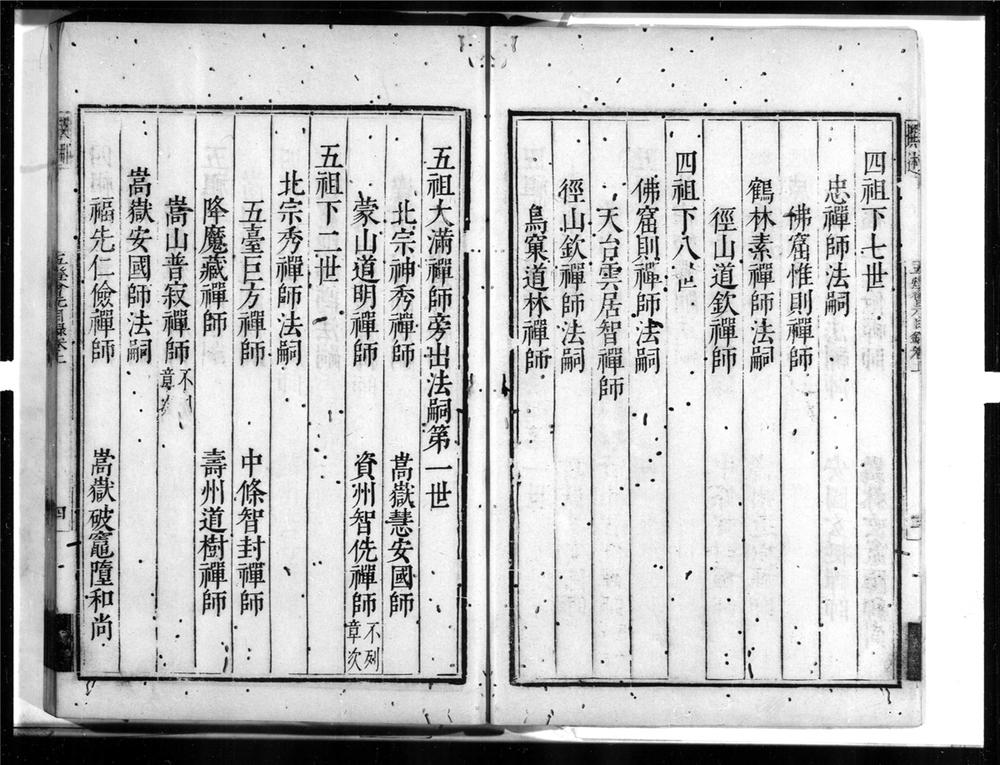 四祖下七世
忠禪師法嗣
佛窟惟則禪師
鶴林素禪師法嗣
徑山道欽禪師
四祖下八世
佛窟則禪師法嗣
天台雲居智禪師
徑山欽禪師法嗣
鳥窠道林禪師
五祖大滿禪師旁出法嗣第一世
北宗神秀禪師 嵩嶽慧安國師
蒙山道明禪師 資州智侁禪師 不列章次
五祖下二世
北宗秀禪師法嗣
五臺巨方禪師 中條智封禪師
降魔藏禪師 壽州道樹禪師
嵩山普寂禪師 不列章次
嵩嶽安國師法嗣
福先仁儉禪師 嵩嶽破竈墮和尚
四